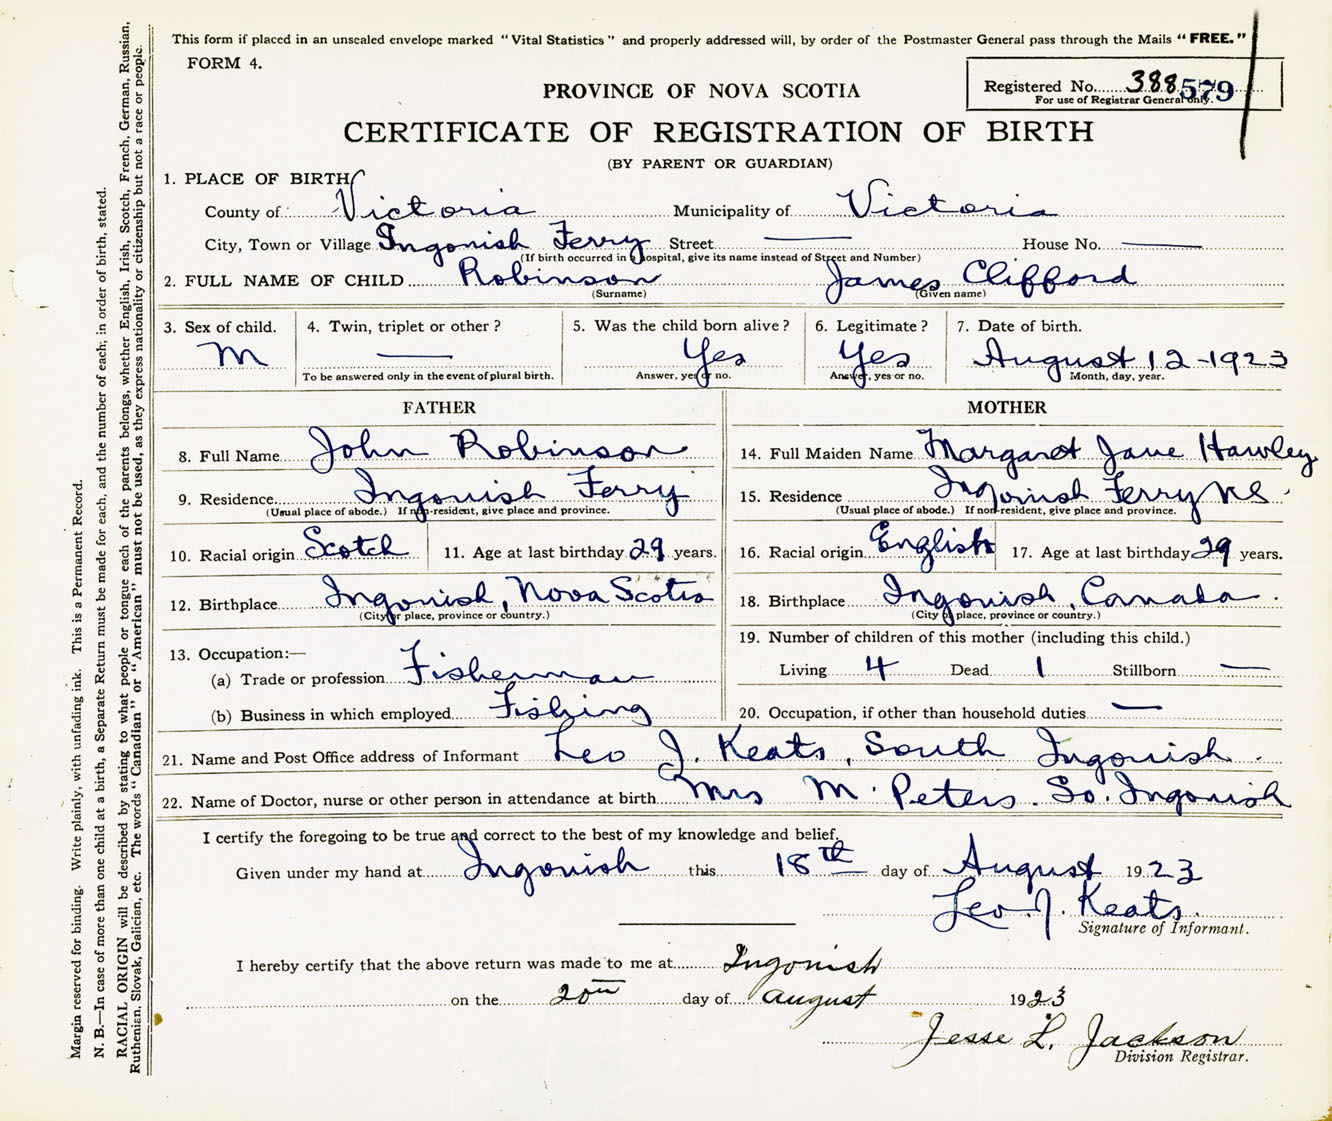 This form if placed in an unsealed envelope marked "Vital Statistics" and properly addressed will, by order of the Postmaster General pass through the Mails "FREE."
FORM 4.
Registered No. 388 579
For use of Registrar General only.
PROVINCE OF NOVA SCOTIA
CERTIFICATE OF REGISTRATION OF BIRTH
(BY PARENT OR GUARDIAN)
1. PLACE OF BIRTH
County of Victoria Municipality of Victoria
City, Town or Village Ingonish Ferry Street — House No. —
(If birth occurred in a hospital, give its name instead of Street and Number)
2. FULL NAME OF CHILD Robinson James Clifford
(Surname) (Given name)
3. Sex of child. 4. Twin, triplet or other? 5. Was the child born alive? 6. Legitimate? 7. Date of birth.
M — Yes Yes August 12-1923
To be answered only in the event of plural birth. Answer, yes or no. Answer, yes or no. Month, day, year.
FATHER
8. Full Name John Robinson
9. Residence Ingonish Ferry
(Usual place of abode.) If non-resident, give place and province.
10. Racial origin Scotch 11. Age at last birthday 29 years.
12. Birthplace Ingonish, Nova Scotia
(City or place, province or country.)
13. Occupation:—
(a) Trade or profession Fisherman
(b) Business in which employed Fishing
MOTHER
14. Full Maiden Name Margaret Jane Hawley
15. Residence Ingonish Ferry NS.
(Usual place of abode.) If non-resident, give place and province.
16. Racial origin English 17. Age at last birthday 29 years.
18. Birthplace Ingonish, Canada.
(City or place, province or country.)
19. Number of children of this mother (including this child.)
Living 4 Dead 1 Stillborn —
20. Occupation, if other than household duties —
21. Name and Post Office address of Informant Leo J. Keats, South Ingonish.
22. Name of Doctor, nurse or other person in attendance at birth Mrs M. Peters. So. Ingonish
I certify the foregoing to be true and correct to the best of my knowledge and belief.
Given under my hand at Ingonish this 18th day of August 1923
Leo. J. Keats.
Signature of Informant.
I hereby certify that the above return was made to me at Ingonish
on the 20th day of august 1923
Jesse L. Jackson
Division Registrar.
Margin reserved for binding. Write plainly, with unfading ink. This is a Permanent Record.
N. B.—In case of more than one child at a birth, a Separate Return must be made for each, and the number of each; in order of birth, stated.
RACIAL ORIGIN will be described by stating to what people or tongue each of the parents belongs, whether English, Irish, Scotch, French, German, Russian,
Ruthenian, Slovak, Galician, etc. The words "Canadian" or "American" must not be used, as they express nationality or citizenship but not a race or people.